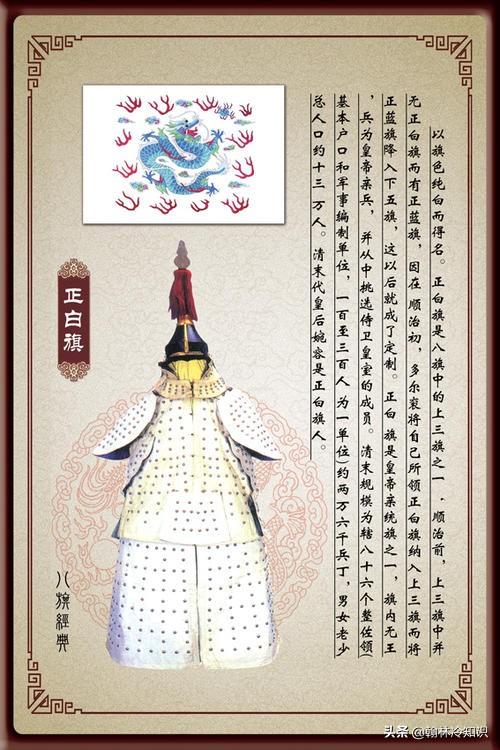 以旗色纯白而得名。正白旗是八旗中的上三旗之一．顺治前，上三旗中并
无正白旗而有正蓝旗，因在顺治初，多尔衮将自己所领正白旗纳入上三旗而将
正蓝旗降入下五旗，这以后就成了定制。正白旗是皇帝亲统旗之一，旗内无王
，兵为皇帝亲兵，并从中挑选侍卫皇室的成员。清末规模为辖八十六个整佐领(
基本户口和军事编制单位，一百至三百人为一单位)约两万六千兵丁，男女老少
总人口约十三万人。清末代皇后婉容是正白旗人。
正白旗
八旗經典
头条 @翰林冷知识